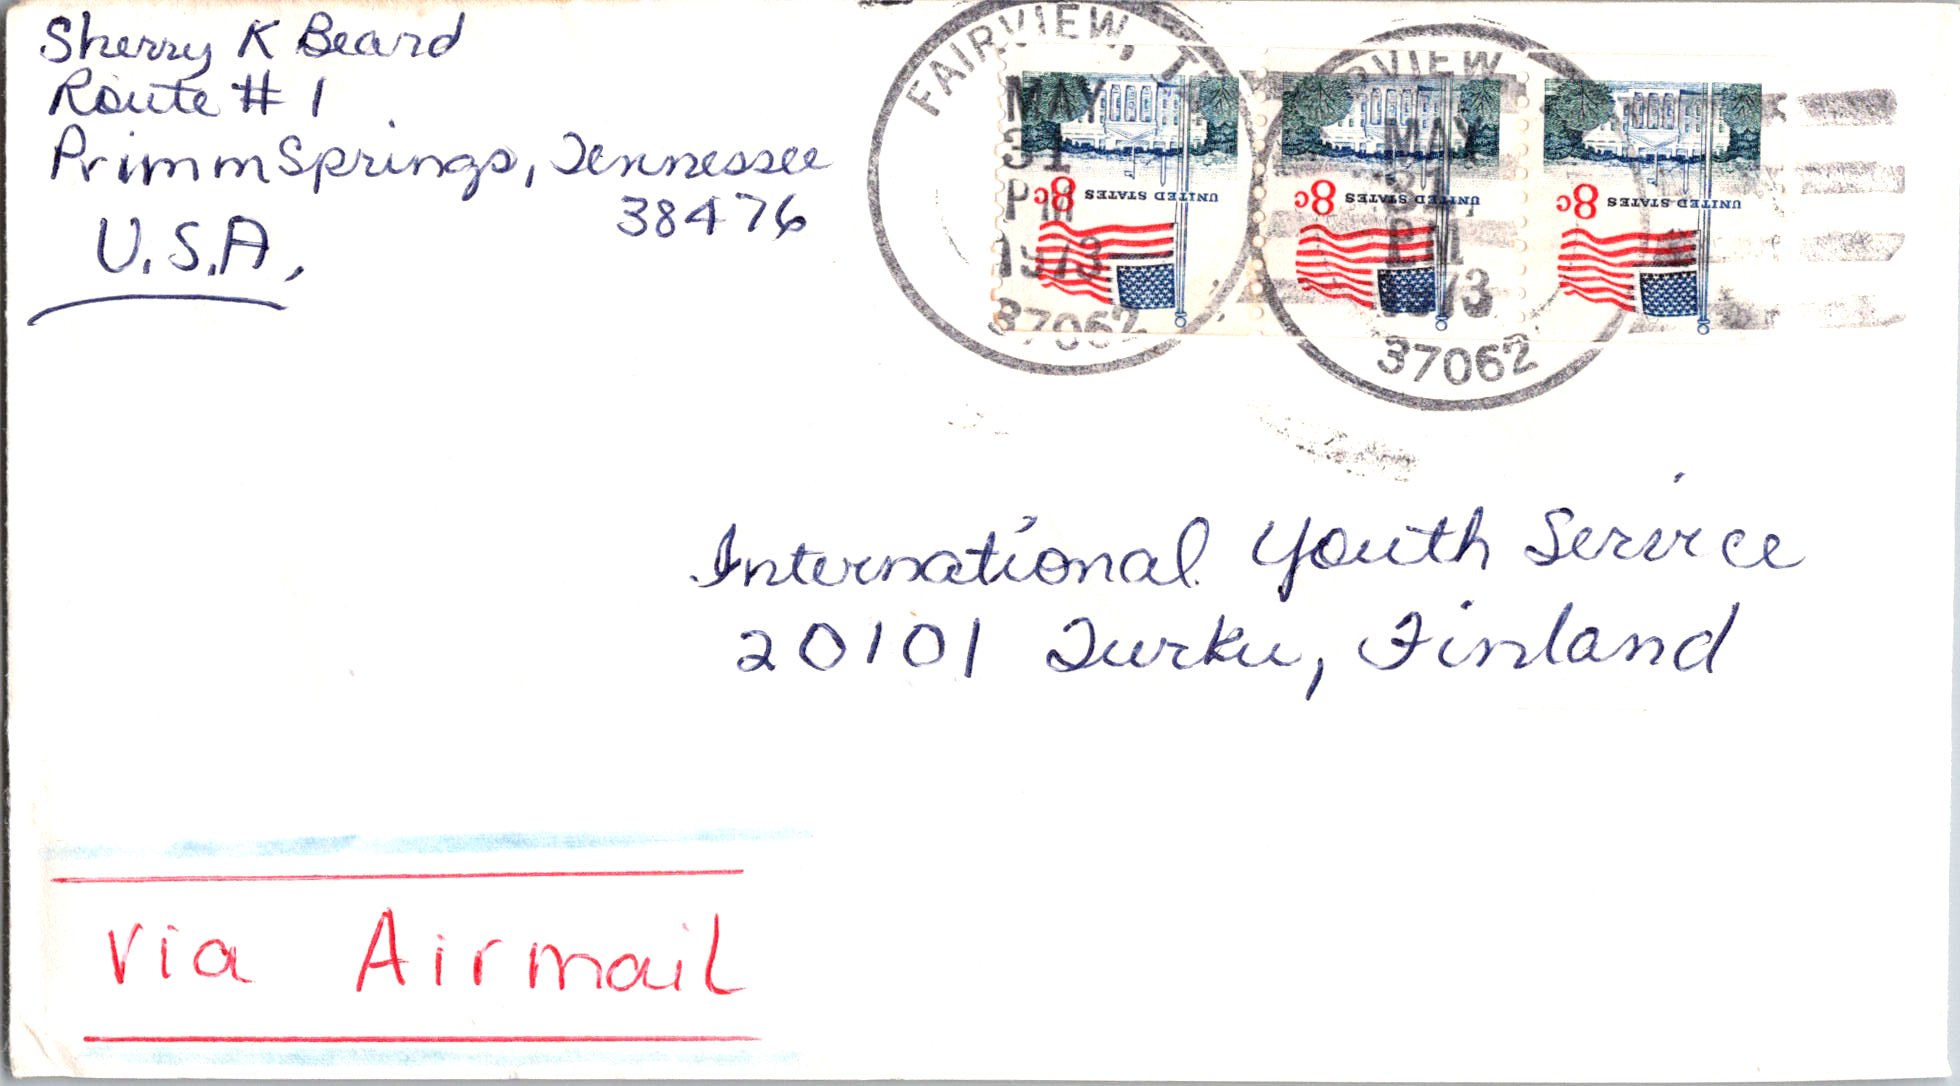 Sherry K Beard
Route # 1
Primm Springs, Tennessee
38476
U.S.A,
FAIRVIEW, T
MAY
31
PM
1973
37062
RVIEW
MAY
31
PM
73
37062
8c UNITED STATES
8c UNITED STATES
8c UNITED STATES
International Youth Service
20101 Turku, Finland
Via Airmail